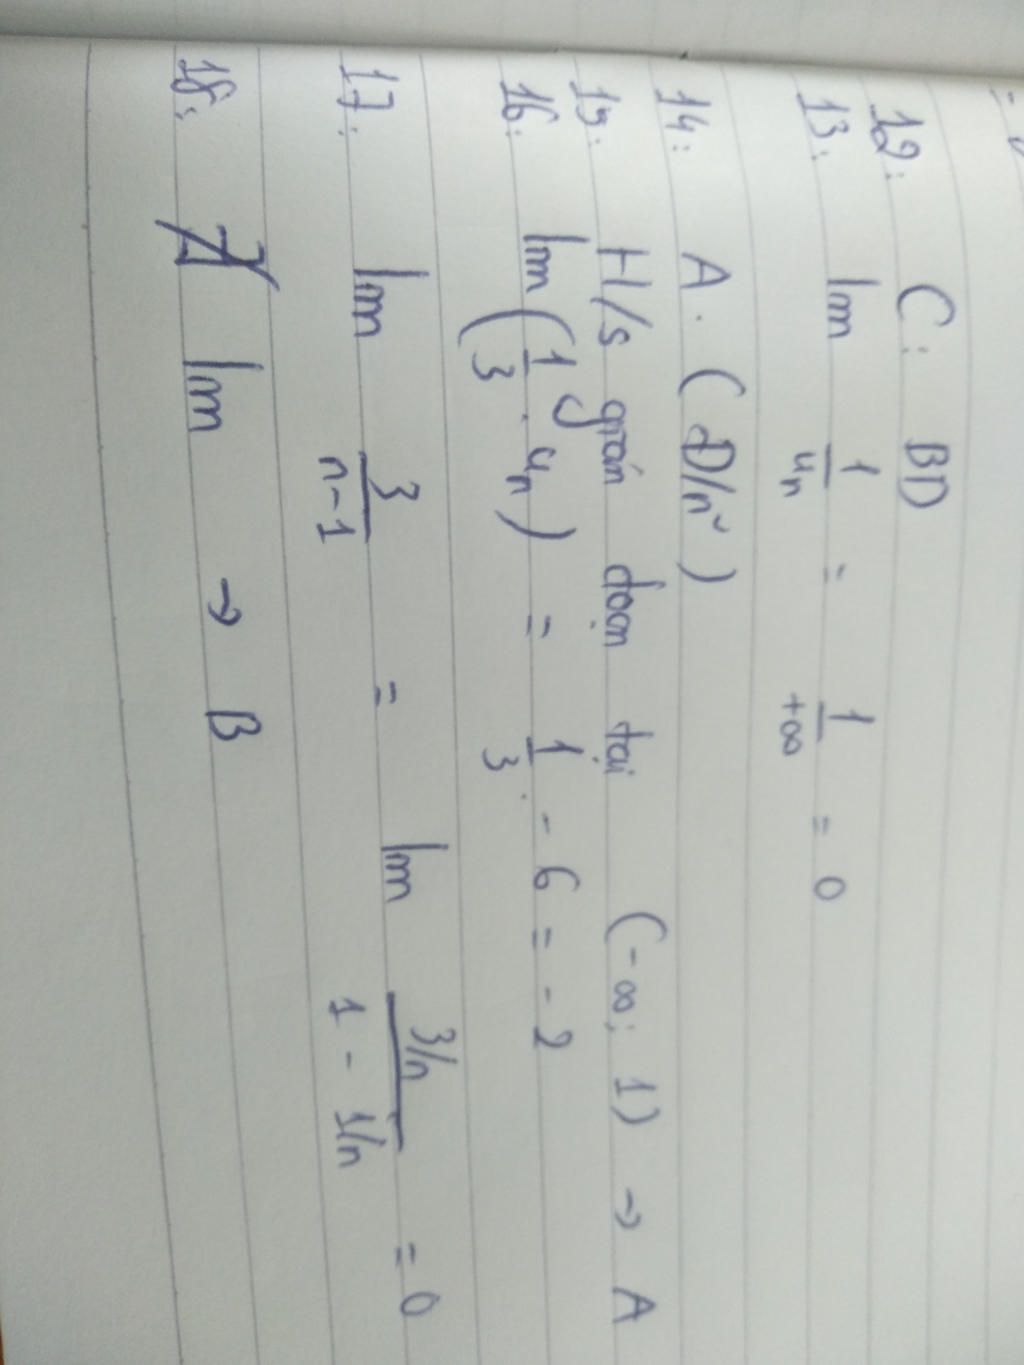 12: C: BD
13: lim 1/uₙ = 1/+∞ = 0
14: A. (Đ/n²)
15: H/s gián đoạn tại (-∞; 1) → A
16: lim (1/3 . uₙ) = 1/3 . - 6 = - 2
17: lim 3/n-1 = lim 3/n / 1 - 1/n = 0
18: lim → B